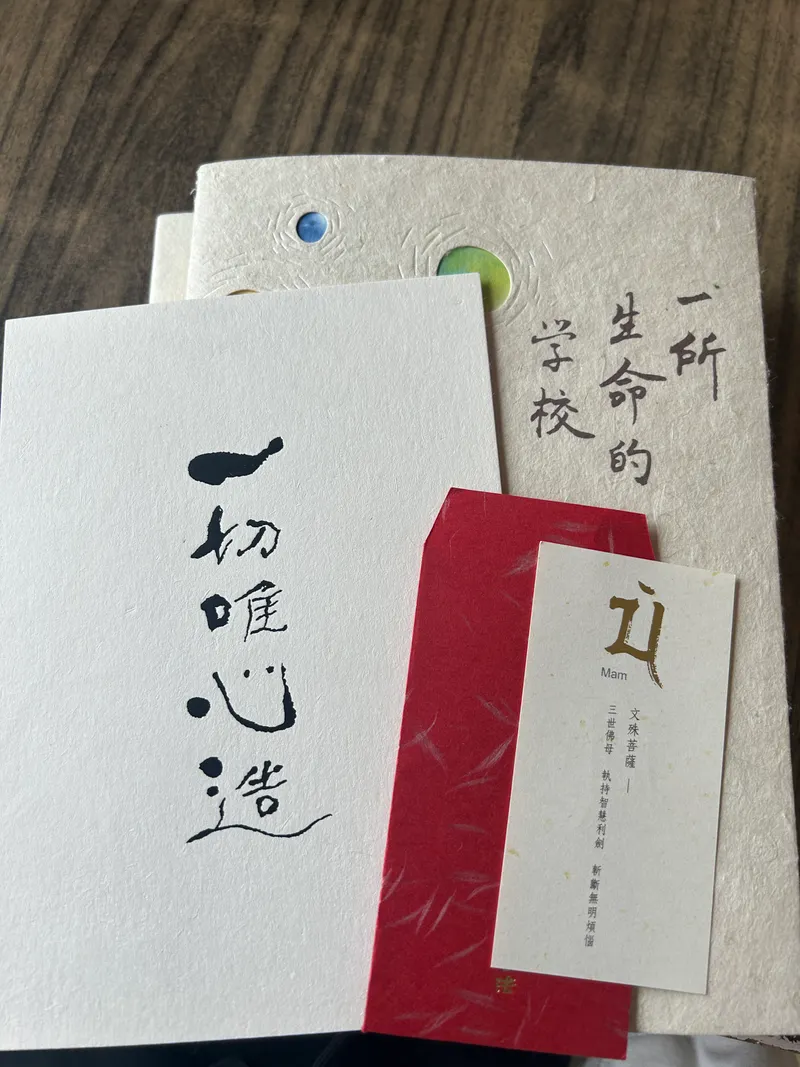 一所
生命的
学校
一切唯心造
Mam
文殊菩薩—
三世佛母 執持智慧利劍 斬斷無明煩惱